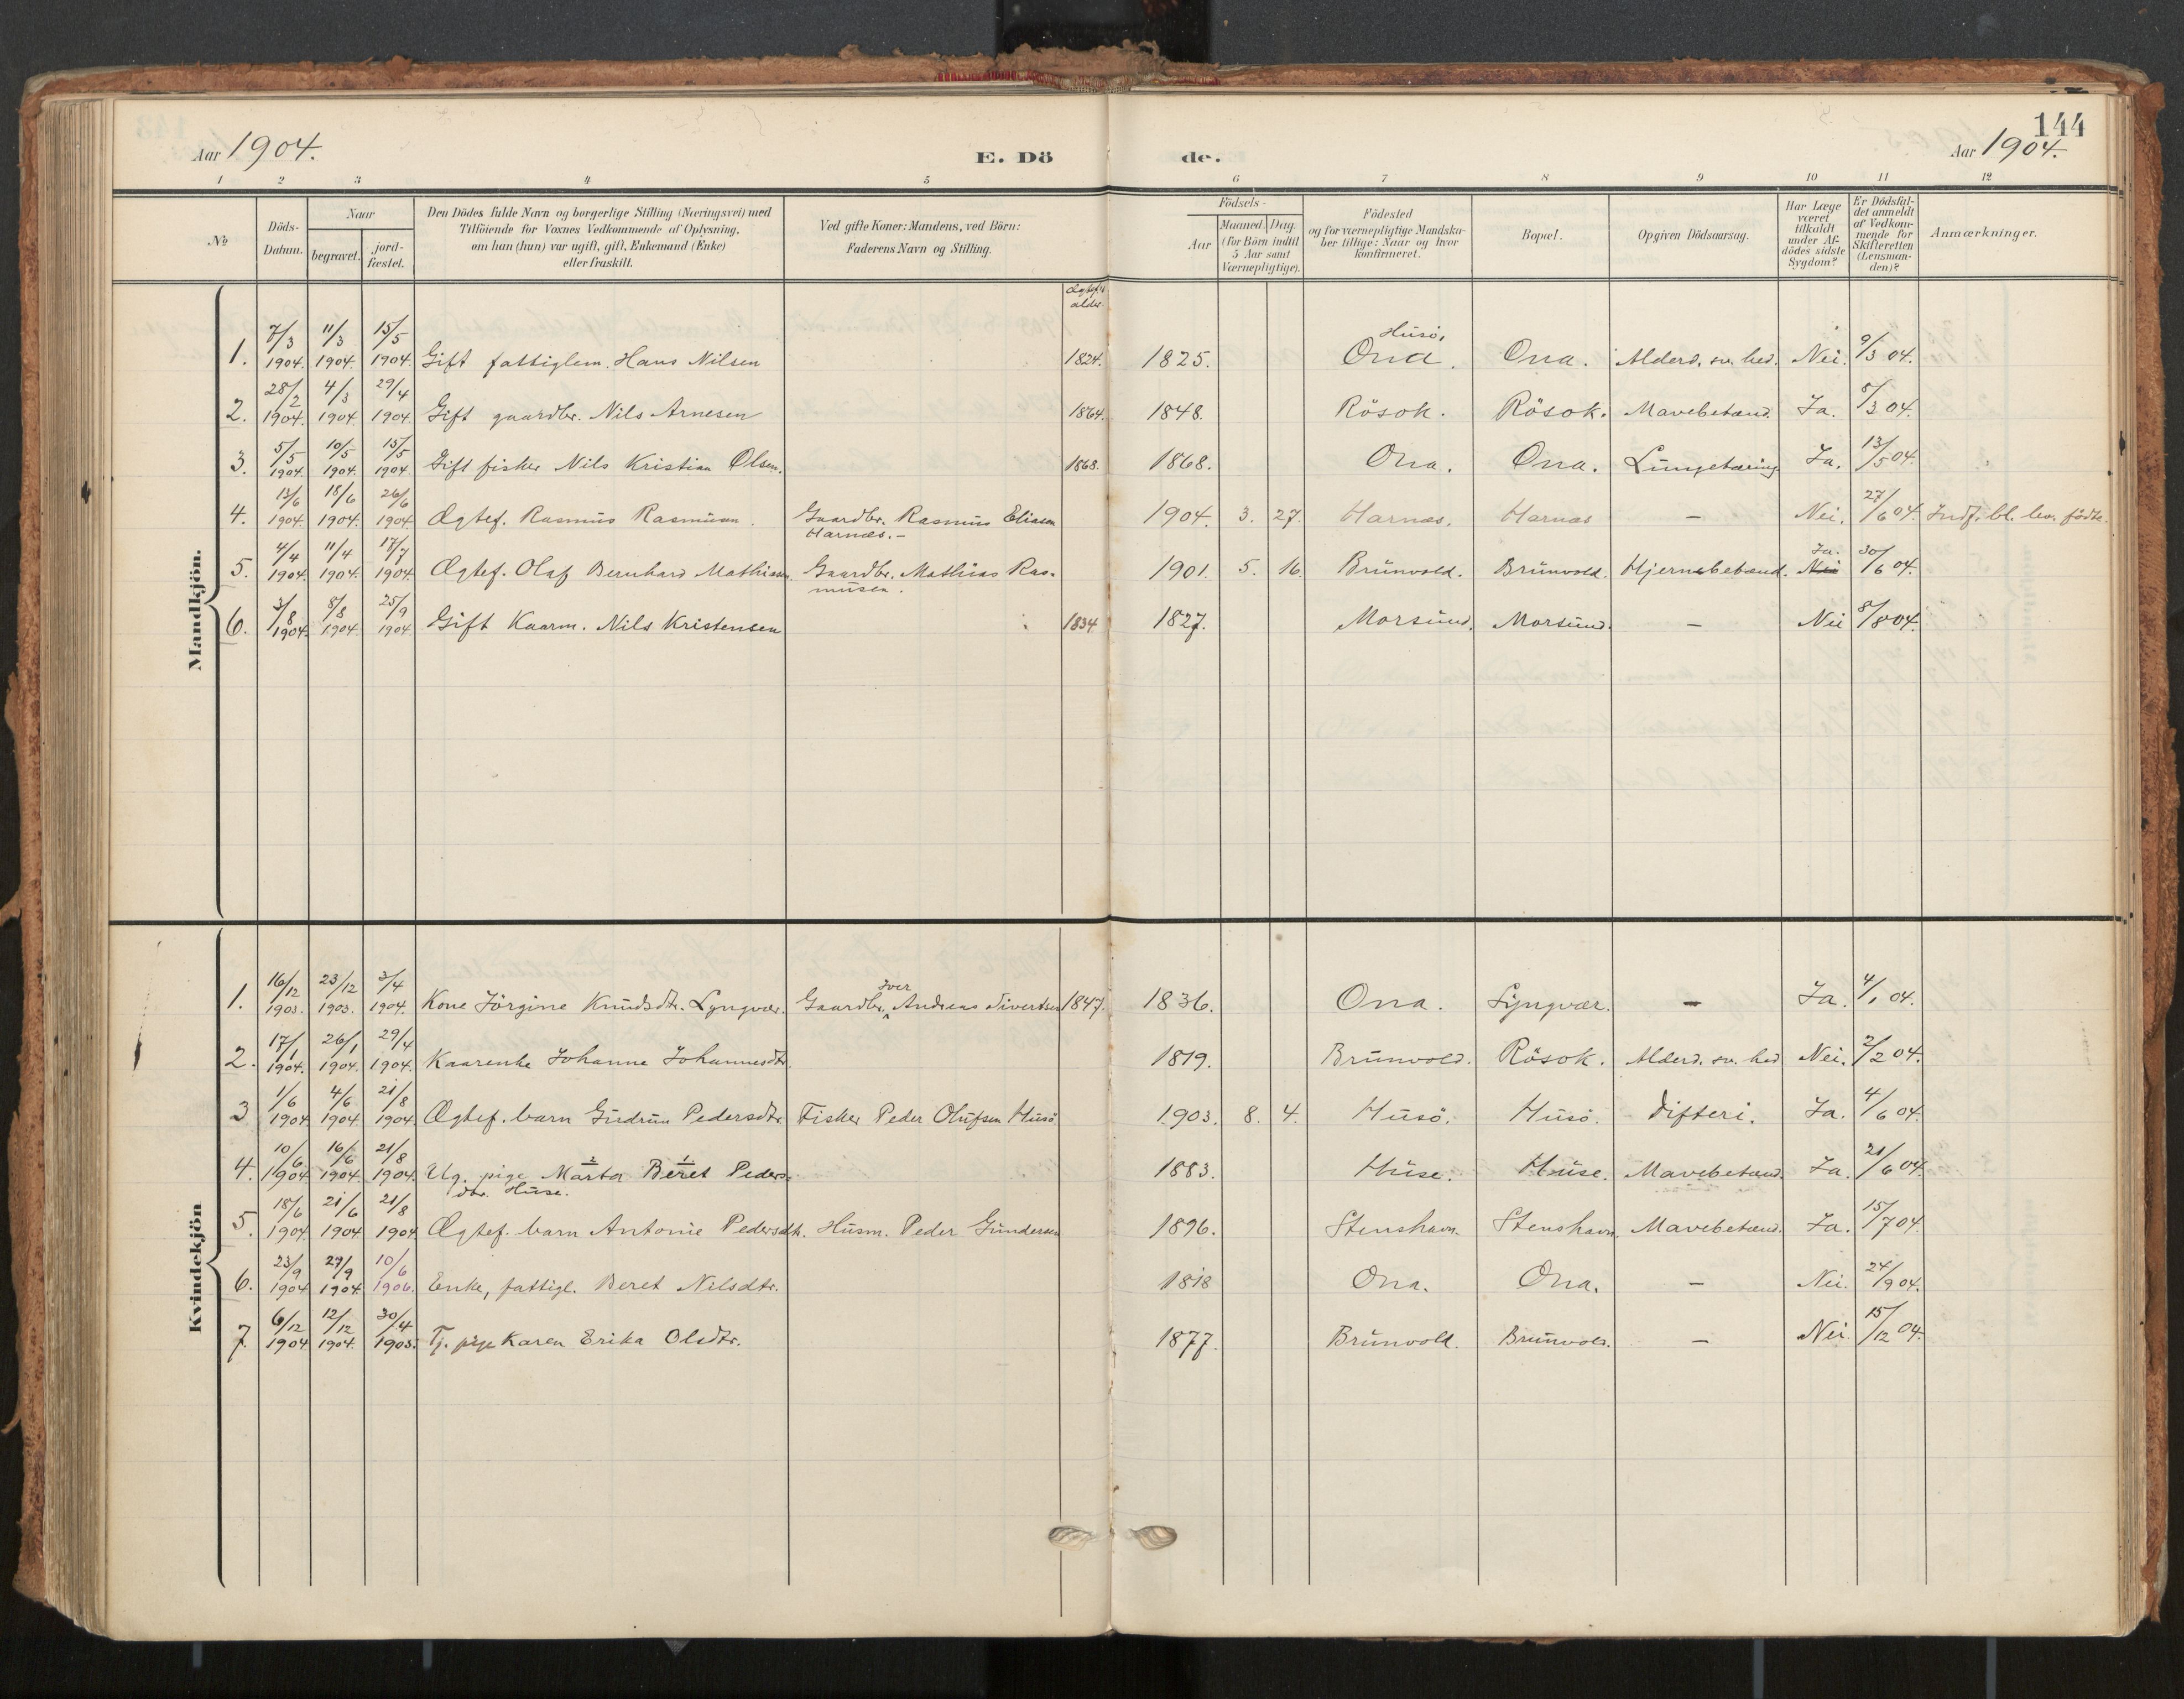 144
Aar 1904. E. Dö de. Aar 1904.
1 2 3 4 5 6 7 8 9 10 11 12
№
Döds-Datum.
Naar
begravet.
jordfæstet.
Den Dödes fulde Navn og borgerlige Stilling (Næringsvei) med
Tilföiende for Voxnes Vedkommende af Oplysning,
om han (hun) var ugift, gift, Enkemand (Enke)
eller fraskilt.
Ved gifte Koner: Mandens, ved Börn:
Faderens Navn og Stilling.
Födsels-
Aar
Maaned. Dag.
(for Börn indtil
5 Aar samt
Værnepligtige).
Födested
og for værnepligtige Mandska-
ber tillige: Naar og hvor
konfirmeret.
Bopæl.
Opgiven Dödsaarsag.
Har Læge
været
tilkaldt
under Af-
dödes sidste
Sygdom?
Er Dödsfal-
det anmeldt
af Vedkom-
mende for
Skifteretten
(Lensman-
den)?
Anmærkninger.
Mandkjön.
alder.
1. 7/3 1904. 11/3 1904. 15/5 1904. Gift fattiglem. Hans Nilsen 1824. 1825. Husö, Ona. Ona. Alderd. sv. hed. Nei. 9/3 04.
2. 28/2 1904. 4/3 1904 29/4 1904. Gift gaardbr. Nils Arnesen 1864. 1848. Rösok. Rösok. Mavebetænd. Ja. 8/3 04.
3. 5/5 1904. 10/5 1904. 15/5 1904. Gift fisker Nils Kristian Olsen. 1868. 1868. Ona. Ona. Lungetæring Ja. 13/5 04.
4. 13/6 1904. 18/6 1904. 26/6 1904. Ægtef. Rasmus Rasmusen. Gaardbr. Rasmus Eliasen
Harnæs. – 1904. 3. 27. Harnæs. Harnæs – Nei. 27/6 04. Indf. bl. lev. födte.
5. 4/4 1904. 11/4 1904. 17/7 1904. Ægtef. Olaf Bernhard Mathiasen. Gaardbr. Mathias Ras-
musen. 1901. 5. 16. Brunvold. Brunvold. Hjernebetænd. Nei Ja. 30/6 04.
6. 3/8 1904. 8/8 1904. 25/9 1904 Gift Kaarm. Nils Kristensen 1834 1827. Morsund. Morsund. – Nei 8/8 04.
Kvindekjön
1. 16/12 1903. 23/12 1903. 3/4 1904. Kone Jörgine Knudsdtr. Lyngvær. Gaardbr. Iver Andreas Sivertsen 1847. 1836. Ona. Lyngvær. – Ja. 4/1 04.
2. 17/1 1904. 26/1 1904. 29/4 1904. Kaarenke Johanne Johannesdtr. 1819. Brunvold. Rösok. Alderd. sv. hed Nei. 2/2 04.
3 1/6 1904 4/6 1904 21/8 1904. Ægtef. barn Gudrun Pedersdtr. Fisker Peder Olufsen Husö. 1903. 8. 4. Husö. Husö. Difteri. Ja. 4/6 04.
4. 10/6 1904 16/6 1904 21/8 1904. Ug. pige Marta 2 Beret 1 Peders-
dtr. Huse. 1883. Huse. Huse. Mavebetænd. Ja. 21/6 04.
5. 18/6 1904 21/6 1904 21/8 1904 Ægtef. barn Antonie Pedersdtr. Husm. Peder Gundersen 1896. Stenshavn. Stenshavn. Mavebetænd. Ja. 15/7 04.
6. 23/9 1904 27/9 1904 10/6 1906. Enke, fattigl. Beret Nilsdtr. 1818 Ona. Ona. – Nei. 24/9 04.
7. 6/12 1904 12/12 1904. 30/4 1905. Tj. pige Karen Erika Olsdtr. 1877. Brunvold. Brunvold. – Nei. 15/12 04.